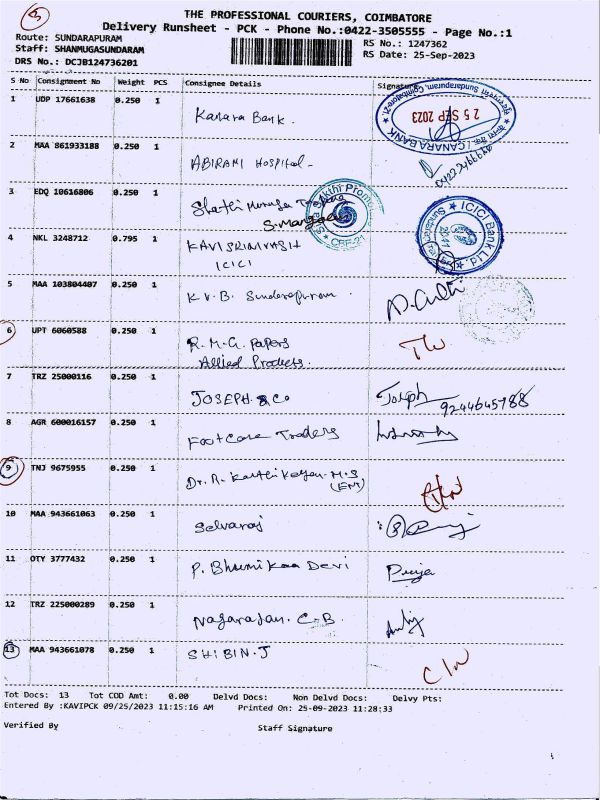 5
THE PROFESSIONAL COURIERS, COIMBATORE
Delivery Runsheet - PCK - Phone No.:0422-3505555 - Page No.:1
Route: SUNDARAPURAM
RS No.: 1247362
Staff: SHANMUGASUNDARAM
RS Date: 25-Sep-2023
DRS No.: DCJB124736201
S No Consignment No Weight PCS Consignee Details Signature
1 UDP 17661638 0.250 1 Kanara Bank.
CANARA BANK
25 SEP 2023
2 MAA 861933188 0.250 1 ABIRAMI HOSPITAL-
3 EDQ 10616806 0.250 1 Shathi Muruga
Sakthi Promo
CBE-21
4 NKL 3248712 0.795 1 KAVI SRINIVASH
ICICI
ICICI Bank Ltd
5 MAA 103804407 0.250 1 K.V.B. Sundarapuram
6 UPT 6060588 0.250 1 R.M.G. Papers
Allied Products.
7 TRZ 25000116 1 JOSEPH & Co Joseph
9244645788
8 AGR 600016157 0.250 1 Footcare Traders
9 TNJ 9675955 0.250 1 Dr. R. Karthikeyan M.S
(ENT)
10 MAA 943661063 0.250 1 Selvaraj
11 OTY 3777432 0.250 1 P. Bhumikaa Devi Priya
12 TRZ 225000289 0.250 1 Nagarajan. C.B.
13 MAA 943661078 0.250 1 SHIBIN.J
Tot Docs: 13 Tot COD Amt: 0.00 Delvd Docs: Non Delvd Docs: Delvy Pts:
Entered By :KAVIPCK 09/25/2023 11:15:16 AM Printed On: 25-09-2023 11:28:33
Verified By Staff Signature